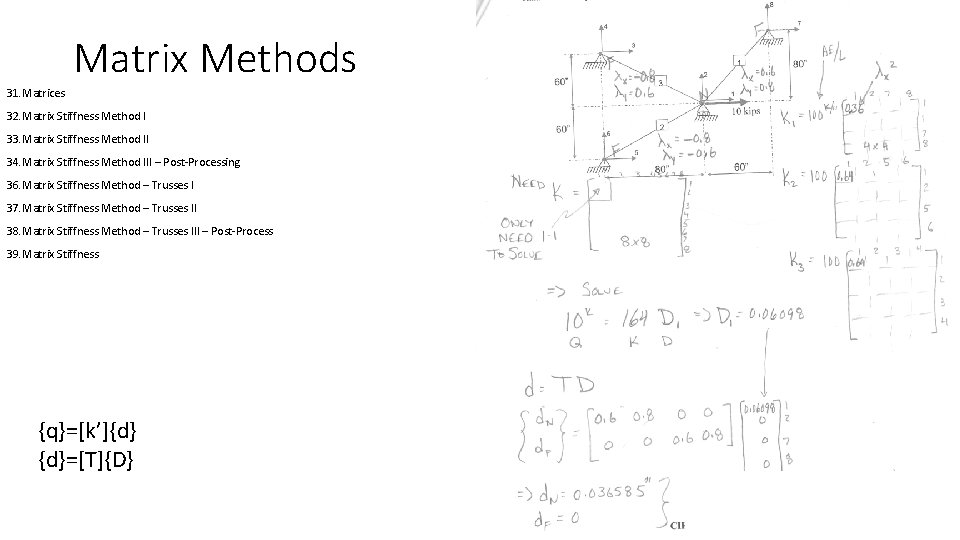 Matrix Methods
31. Matrices
32. Matrix Stiffness Method I
33. Matrix Stiffness Method II
34. Matrix Stiffness Method III – Post-Processing
36. Matrix Stiffness Method – Trusses I
37. Matrix Stiffness Method – Trusses II
38. Matrix Stiffness Method – Trusses III – Post-Process
39. Matrix Stiffness
{q}=[k’]{d}
{d}=[T]{D}
8
7
F
4
3
F
60"
60"
80"
80"
60"
λx=-0.8
λy=0.6
3
1
λx=0.6
λy=0.8
2
N
1
10 kips
2
λx=-0.8
λy=-0.6
6
5
F
AE/L
λx²
K1=100 K/in
0.36
1 2 7 8
1
2
7
8
4x4
K2=100
0.64
1 2 5 6
1
2
5
6
K3=100
0.64
1 2 3 4
1
2
3
4
NEED K =
ONLY
NEED 1-1
TO SOLVE
8x8
1
2
3
4
5
6
7
8
=> SOLVE
10ᴷ = 164 D1 => D1=0.06098
Q K D
d=TD
{dN dF} = [0.6 0.8 0 0
0 0 0.6 0.8]
[0.06098 0 0 0]
1
2
7
8
=> dN=0.036585"
dF=0